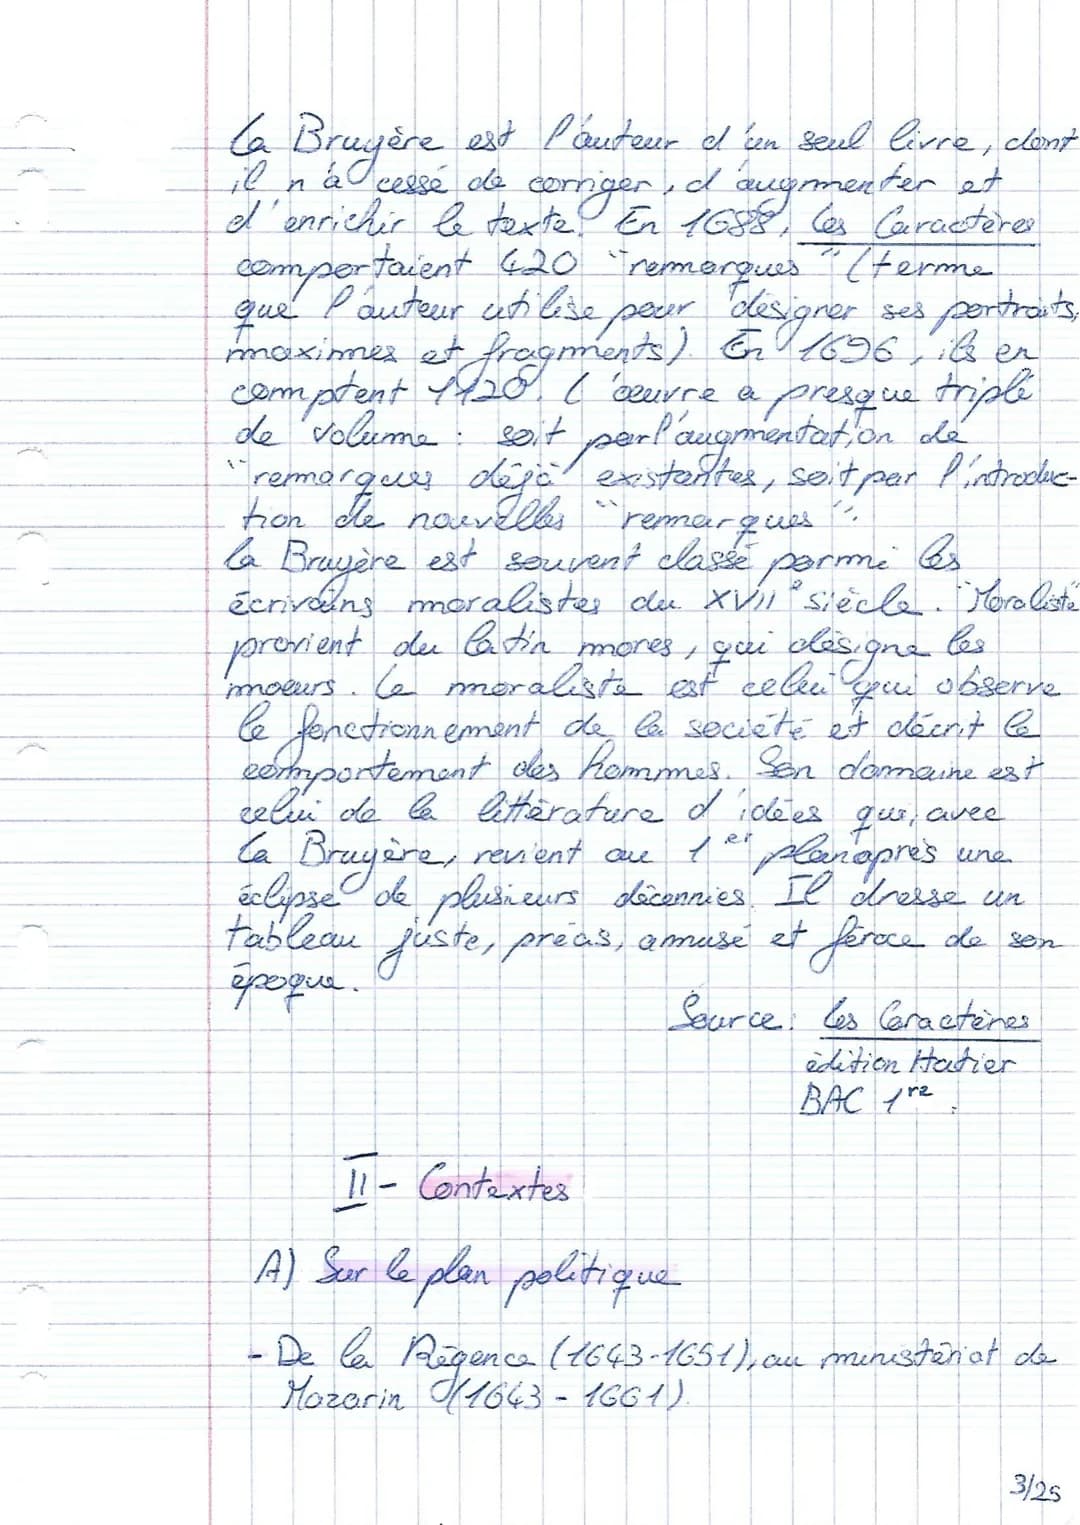 La Bruyère est l'auteur d'un seul livre, dont
il n'a cessé de corriger, d'augmenter et
d'enrichir le texte. En 1688, Les Caractères
comportaient 420 "remarques" (terme
que l'auteur utilise pour désigner ses portraits,
maximes et fragments). En 1696, ils en
comptent 1120. L'œuvre a presque triplé
de volume : soit par l'augmentation de
"remarques déjà existantes, soit par l'introduc-
tion de nouvelles "remarques".
La Bruyère est souvent classé parmi les
écrivains moralistes du XVIIe siècle. "Moraliste"
provient du latin mores, qui désigne les
moeurs. Le moraliste est celui qui observe
le fonctionnement de la société et décrit le
comportement des hommes. Son domaine est
celui de la littérature d'idées qui, avec
La Bruyère, revient au 1er plan après une
éclipse de plusieurs décennies. Il dresse un
tableau juste, précis, amusé et féroce de son
époque.
Source : Les Caractères
édition Hatier
BAC 1re.
II - Contextes
A) Sur le plan politique
- De la Régence (1643-1651), au ministériat de
Mazarin (1643 - 1661).
3/25